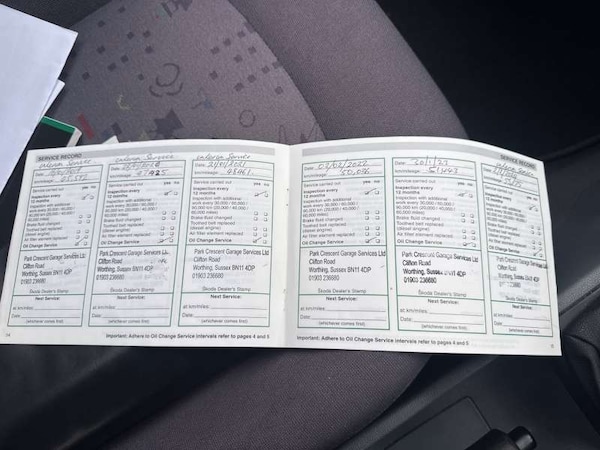 SERVICE RECORD
Interim Service
Date:
km/mileage:
Service carried out yes no
Inspection every
12 months
Inspection with additional
work every 30,000 / 60,000 /
40,000 km (20,000 / 40,000 /
60,000 miles)
Brake fluid changed
Toothed belt replaced
(diesel engine)
Air filter element replaced
Oil Change Service
Park Crescent Garage Services Ltd
Clifton Road
Worthing, Sussex BN11 4DP
01903 236680
Škoda Dealer's Stamp
Next Service:
at km/miles:
Date:
(whichever comes first)
Interim Service
Date:
km/mileage: 47425
Service carried out yes no
Inspection every
12 months
Inspection with additional
work every 30,000 / 60,000 /
40,000 km (20,000 / 40,000 /
60,000 miles)
Brake fluid changed
Toothed belt replaced
(diesel engine)
Air filter element replaced
Oil Change Service
Park Crescent Garage Services Ltd
Clifton Road
Worthing, Sussex BN11 4DP
01903 236680
Škoda Dealer's Stamp
Next Service:
at km/miles:
Date:
(whichever comes first)
Interim Service
Date: 21/01/2021
km/mileage: 48961
Service carried out yes no
Inspection every
12 months
Inspection with additional
work every 30,000 / 60,000 /
40,000 km (20,000 / 40,000 /
60,000 miles)
Brake fluid changed
Toothed belt replaced
(diesel engine)
Air filter element replaced
Oil Change Service
Park Crescent Garage Services Ltd
Clifton Road
Worthing, Sussex BN11 4DP
01903 236680
Škoda Dealer's Stamp
Next Service:
at km/miles:
Date:
(whichever comes first)
14
Important: Adhere to Oil Change Service intervals refer to pages 4 and 5
SERVICE RECORD
Date: 02/02/2022
km/mileage: 50,096
Service carried out yes no
Inspection every
12 months
Inspection with additional
work every 30,000 / 60,000 /
40,000 km (20,000 / 40,000 /
60,000 miles)
Brake fluid changed
Toothed belt replaced
(diesel engine)
Air filter element replaced
Oil Change Service
Park Crescent Garage Services Ltd
Clifton Road
Worthing, Sussex BN11 4DP
01903 236680
Škoda Dealer's Stamp
Next Service:
at km/miles:
Date:
(whichever comes first)
Date: 20/1/23
km/mileage: 51,443
Service carried out yes no
Inspection every
12 months
Inspection with additional
work every 30,000 / 60,000 /
40,000 km (20,000 / 40,000 /
60,000 miles)
Brake fluid changed
Toothed belt replaced
(diesel engine)
Air filter element replaced
Oil Change Service
Park Crescent Garage Services Ltd
Clifton Road
Worthing, Sussex BN11 4DP
01903 236680
Škoda Dealer's Stamp
Next Service:
at km/miles:
Date:
(whichever comes first)
Interim Service
Date:
km/mileage:
Service carried out yes no
Inspection every
12 months
Inspection with additional
work every 30,000 / 60,000 /
40,000 km (20,000 / 40,000 /
60,000 miles)
Brake fluid changed
Toothed belt replaced
(diesel engine)
Air filter element replaced
Oil Change Service
Park Crescent Garage Services Ltd
Clifton Road
Worthing, Sussex BN11 4DP
01903 236680
Škoda Dealer's Stamp
Next Service:
at km/miles:
Date:
(whichever comes first)
Important: Adhere to Oil Change Service intervals refer to pages 4 and 5